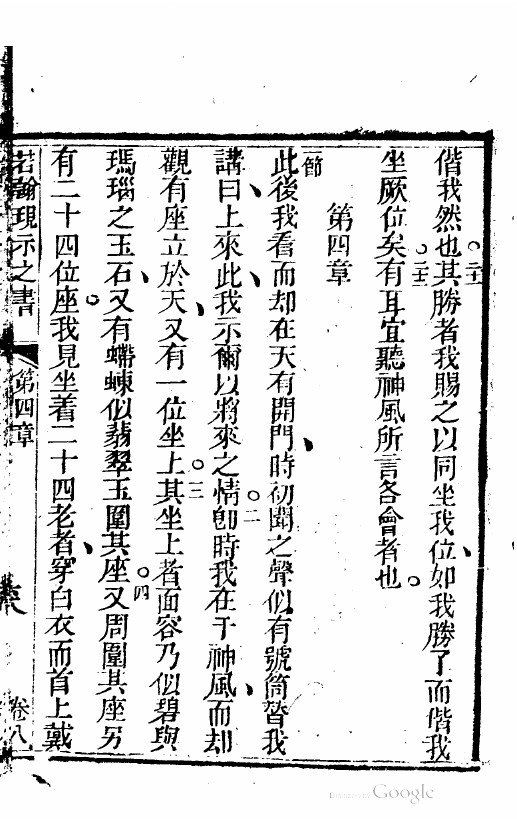 偕我然也。其勝者我賜之以同坐我位、如我勝了而偕我
二十一
坐厥位矣。有耳宜聽神風所言各會者也。
二十二
第四章
一節
此後我看而却在天有開門、時初聞之聲似有號筒、皆我
講曰、上來此、我示爾以將來之情。卽時我在于神風、而却
二
觀有座立於天、又有一位坐上。其坐上者面容乃似碧與
三
瑪瑙之玉石、又有螮蝀似翡翠玉圍其座。又周圍其座另
四
有二十四位座。我見坐着二十四老者、穿白衣而首上戴
若翰現示之書
第四章
卷八
Digitized by Google